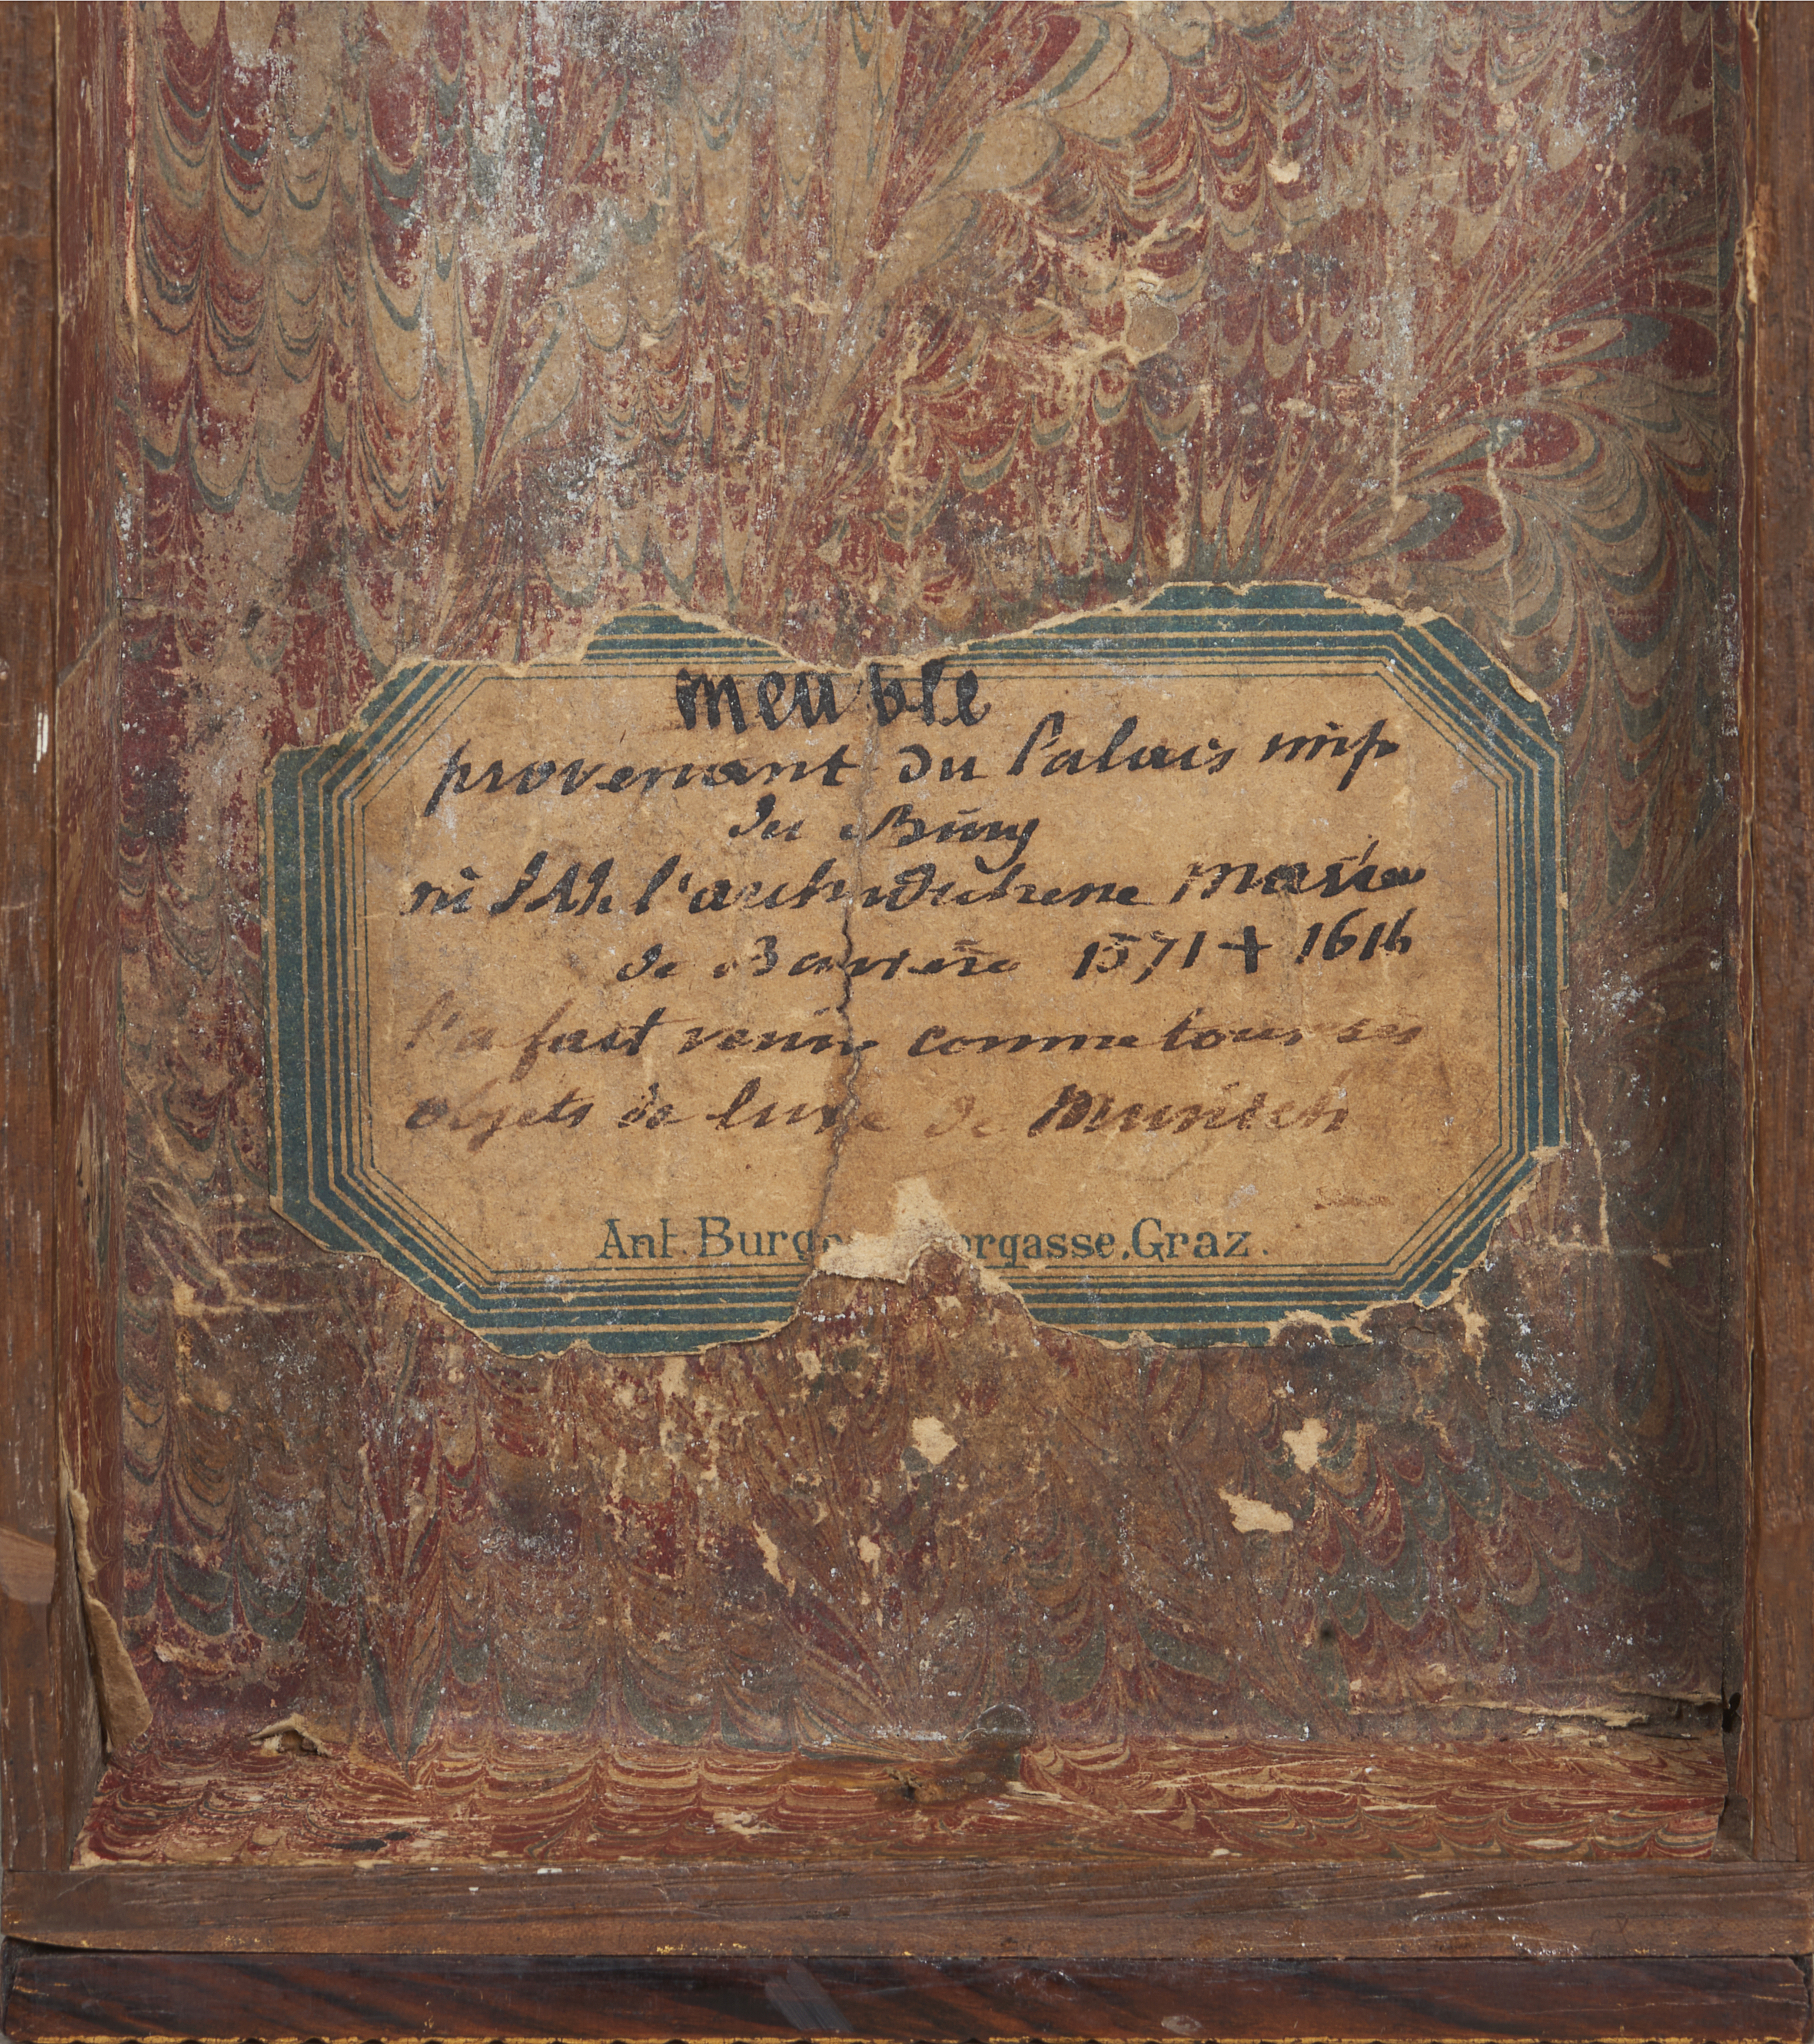 meuble
provenant du Palais imp
du Burg
où SAI l'archiduchesse Maria
de Bavière 1571 + 1616
l'a fait venir comme tous ses
objets de luxe de Munich
Ant. Burg orgasse, Graz.